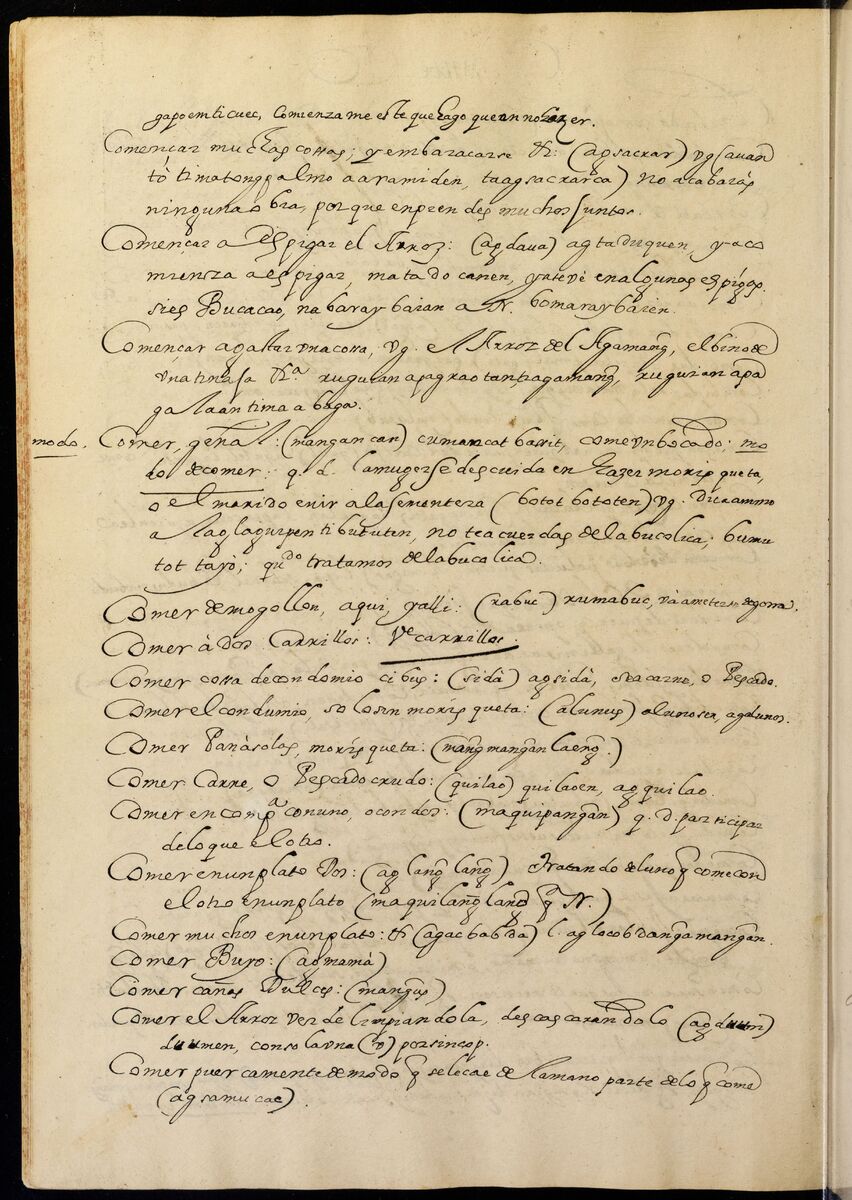 gapoem ti cuec, Comienzame este que hago que un no hazer.
Començar muchas cosas; y embaracarse tr: (agsacrar) vg (auan
to timatongpalmo a aramiden, ta agsacrarca) no acabaràs
ninguna obra, porque enprendes muchos juntos.
Començar a Espigar el Arroz: (agdaua) agtaduquen, ya co
miensza a espigar, matado canen, ya se vè en algunas espigas.
si es Bucacao, nabaraybaian a N. bomaraybaien.
Començar a gastar vna cosa, vg. el Arroz del Agamang, el bino de
vna tinasa tr.ª ruguian apagrao tantiagamang, ruguian apa
gala an tima a baga.
modo. Comer, gēnal: (mangan can) cumancat bassit, come vn bocado; mo
do de comer: q. d. la muger se descuida en hazer morisqueta,
o el marido en ir a la sementera (botot bototen) vg. Dirammo
a laglaguipen ti bututen, no te acuerdas de la bucolica; bumu
tot tayo; qu.do tratamos de la bucolica.
Comer de mogollon, aqui, y alli: (rabuc) rumabuc, và a meterse de gorra.
Comer à dos Carrillos: Ve carrillos.
Comer cosa de condomio cibus: (sidà) agsidà, sea carne, o Pescado.
Comer el condumio, solo sin morisqueta: (alunus) alunosen, agalunos.
Comer Panàsolas, morisqueta: (mangmangan laeng.)
Comer Carne, o Pescado crudo: (quilao) quilaoen, agquilao.
Comer en comp.ª con uno, o con dos: (maquipangan) q. d. participar
de lo que el otro.
Comer en un plato Dos: (aglanglang) tratando del uno q̃ come con
el otro en un plato (maquilanglang q.ª N.)
Comer muchos en un plato: tr (agacbabda) l. aglocobda nga mangan.
Comer Buyo: (agmamà)
Comer cañas Dulces: (mangus)
Comer el Arroz verde limpiandola, descascarandolo (agduum)
duumen, con sola vna (v) por sincop.
Comer puercamente de modo q̃ se le cae de la mano parte de lo q̃ come
(agsamucae).